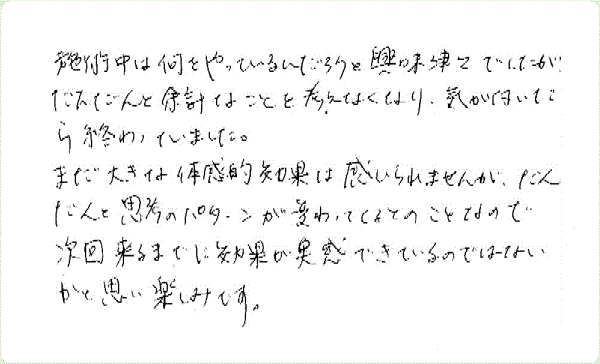 施術中は何をやっているんだろうと興味津々でしたが
だんだんと余計なことを考えなくなり、気が付いた
ら終わっていました。
まだ大きな体感的効果は感じられませんが、だん
だんと思考のパターンが変わってくるとのことなので
次回来るまでに効果が実感できているのではない
かと思い楽しみです。